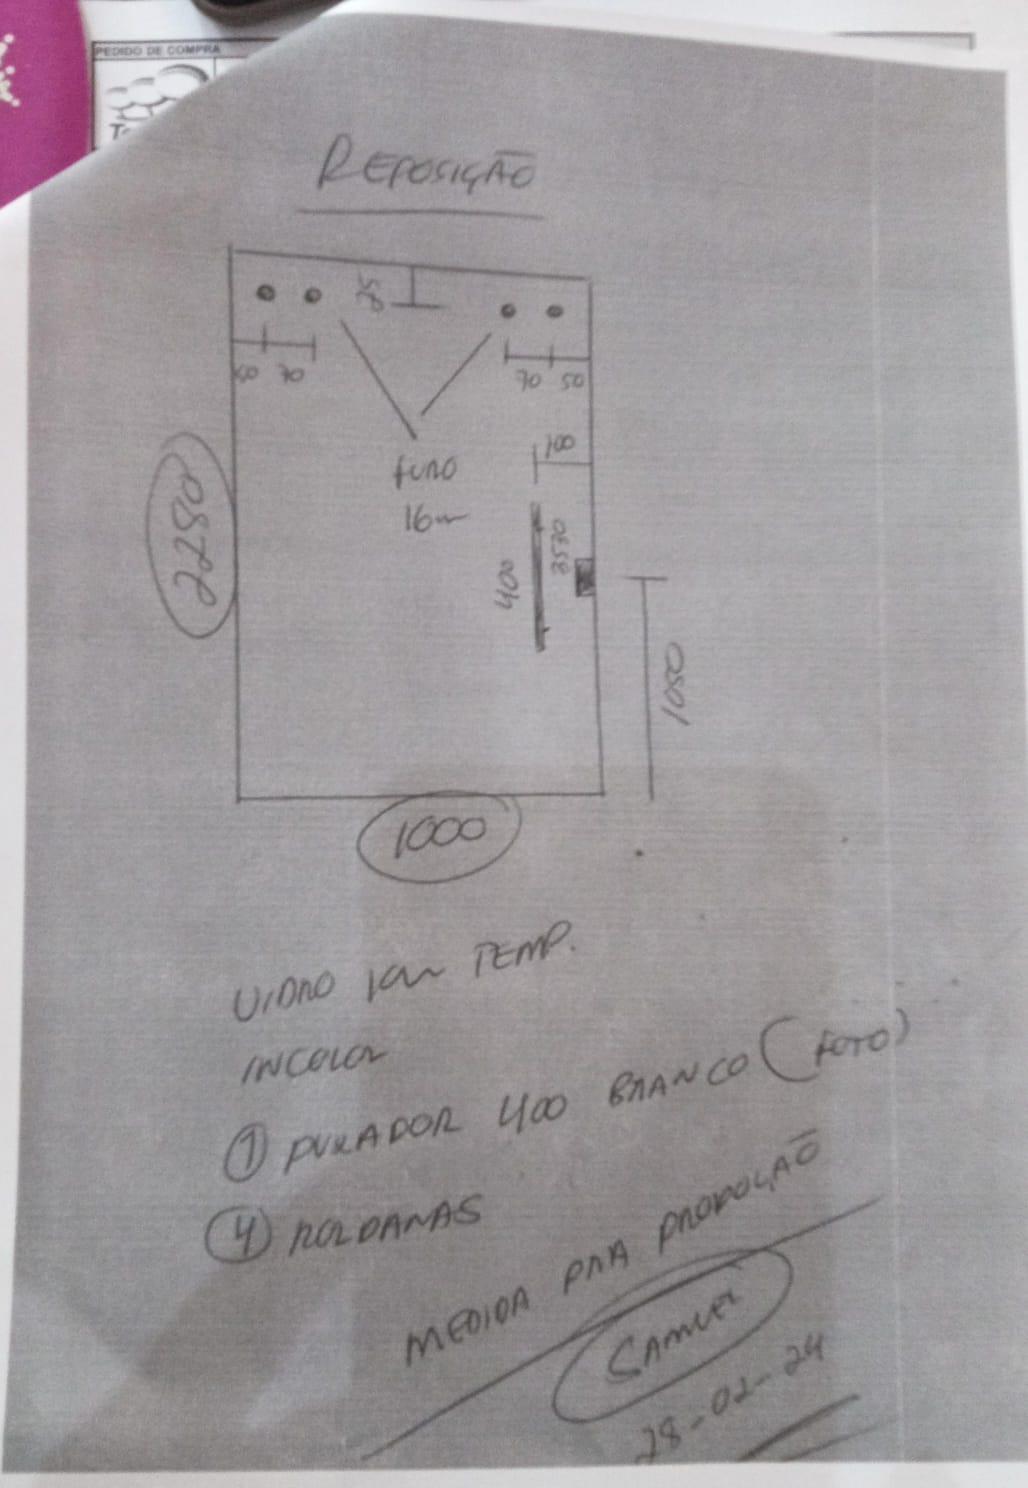 PEDIDO DE COMPRA
REPOSIÇÃO
50 70
70 50
100
FURO
16mm
2280
400
3530
1050
1000
VIDRO 10mm TEMP.
INCOLOR
① PUXADOR 400 BRANCO (FOTO)
④ ROLDANAS
MEDIDA PARA PRODUÇÃO
SAMUEL
28-02-24